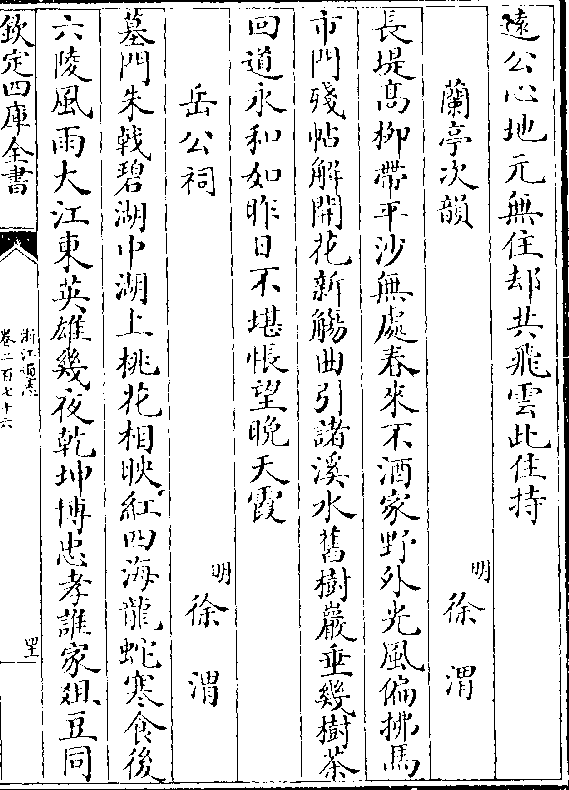 遠公心地元無住却共飛雲此住持
蘭亭次韻
明徐渭
長堤高柳帶平沙無處春來不酒家野外光風偏拂馬
市門殘帖解開花新觴曲引諸溪水舊樹巖垂幾樹茶
回道永和如昨日不堪悵望晚天霞
岳公祠
明徐渭
墓門朱戟碧湖中湖上桃花相映紅四海龍蛇寒食後
六陵風雨大江東英雄幾夜乾坤博忠孝誰家俎豆同
欽定四庫全書
浙江通志
卷二百七十六